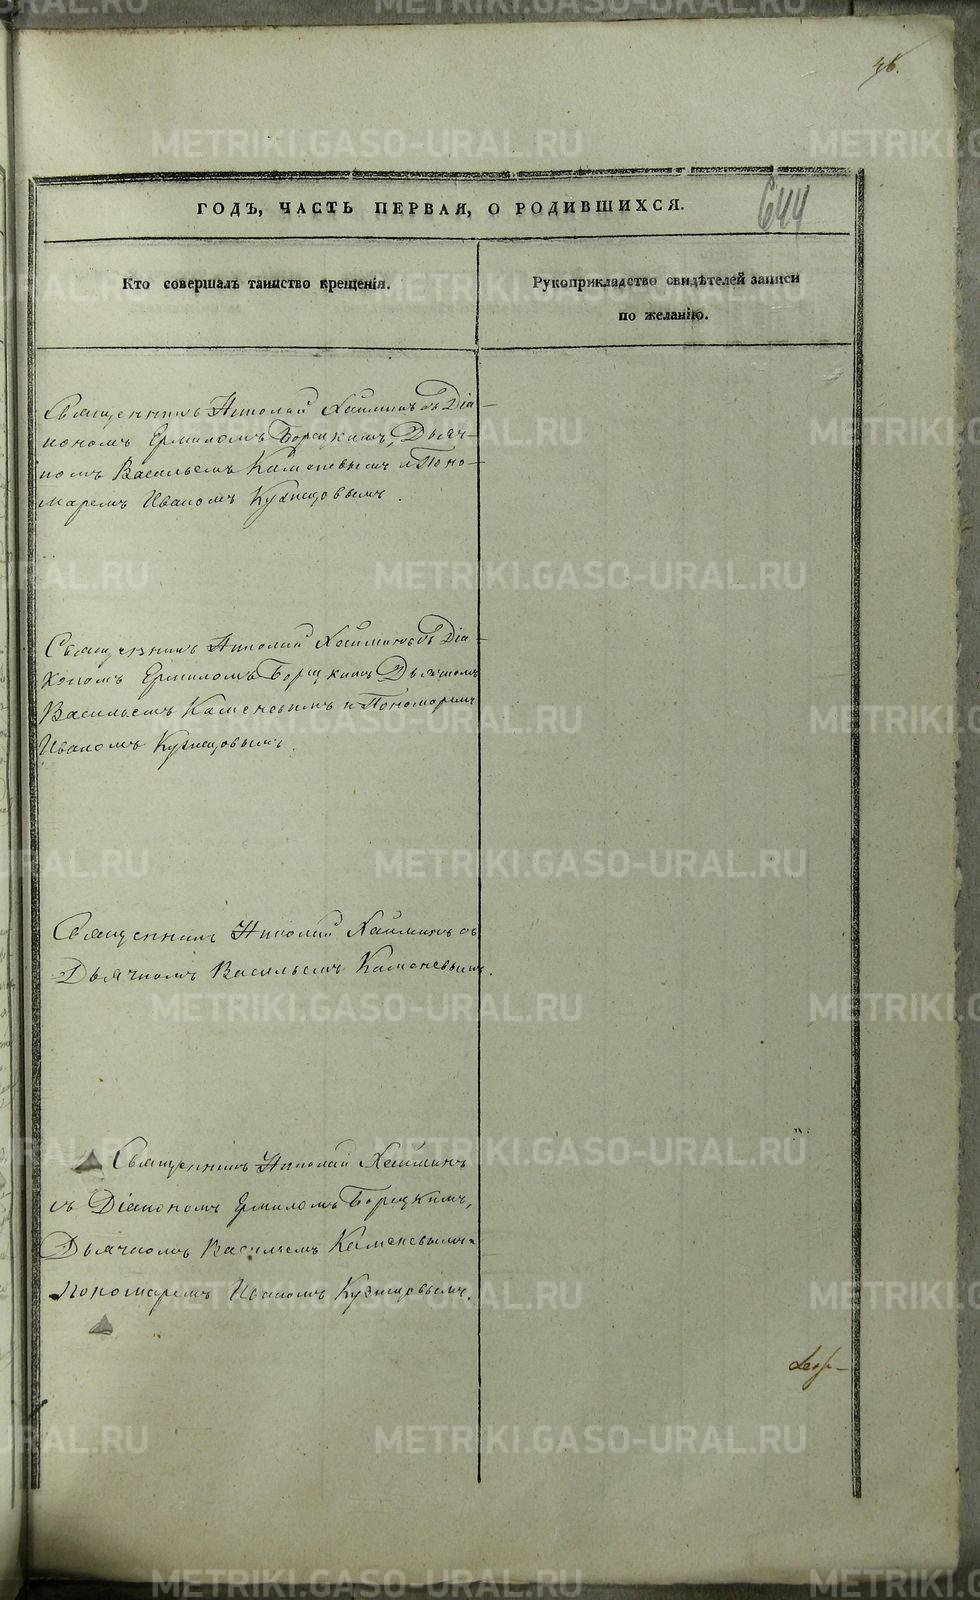 36.
644
ГОДЪ, ЧАСТЬ ПЕРВАЯ, О РОДИВШИХСЯ.
Кто совершалъ таинство крещенія.
Рукоприкладство свидѣтелей записи
по желанію.
Священникъ Николай Хаймин съ Діа-
кономъ Ермиломъ Борецкимъ, Дьяч-
комъ Васильемъ Каменевымъ и Поно-
маремъ Иваномъ Кузнецовымъ.
Священникъ Николай Хайминъ съ Діа-
кономъ Ермиломъ Борецкимъ Дьячкомъ
Васильемъ Каменевымъ и Пономаремъ
Иваномъ Кузнецовымъ.
Священникъ Николай Хайминъ съ
Дьячкомъ Васильемъ Каменевымъ.
Священникъ Николай Хайминъ
съ Діакономъ Ермиломъ Борецкимъ,
Дьячкомъ Васильемъ Каменевымъ и
Пономаремъ Иваномъ Кузнецовымъ.
METRIKI.GASO-URAL.RU